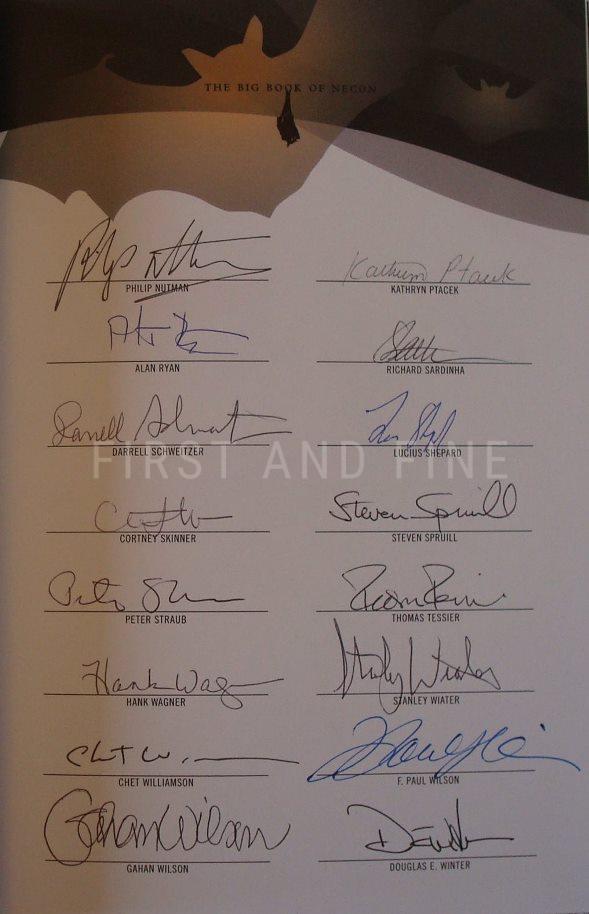 THE BIG BOOK OF NECON
PHILIP NUTMAN
Kathryn Ptacek
KATHRYN PTACEK
ALAN RYAN
RICHARD SARDINHA
Darrell Schweitzer
DARRELL SCHWEITZER
LUCIUS SHEPARD
FIRST AND FINE
CORTNEY SKINNER
Steven Spruill
STEVEN SPRUILL
Peter Straub
PETER STRAUB
THOMAS TESSIER
Hank Wagner
HANK WAGNER
Stanley Wiater
STANLEY WIATER
Chet W.
CHET WILLIAMSON
F. PAUL WILSON
Gahan Wilson
GAHAN WILSON
DOUGLAS E. WINTER